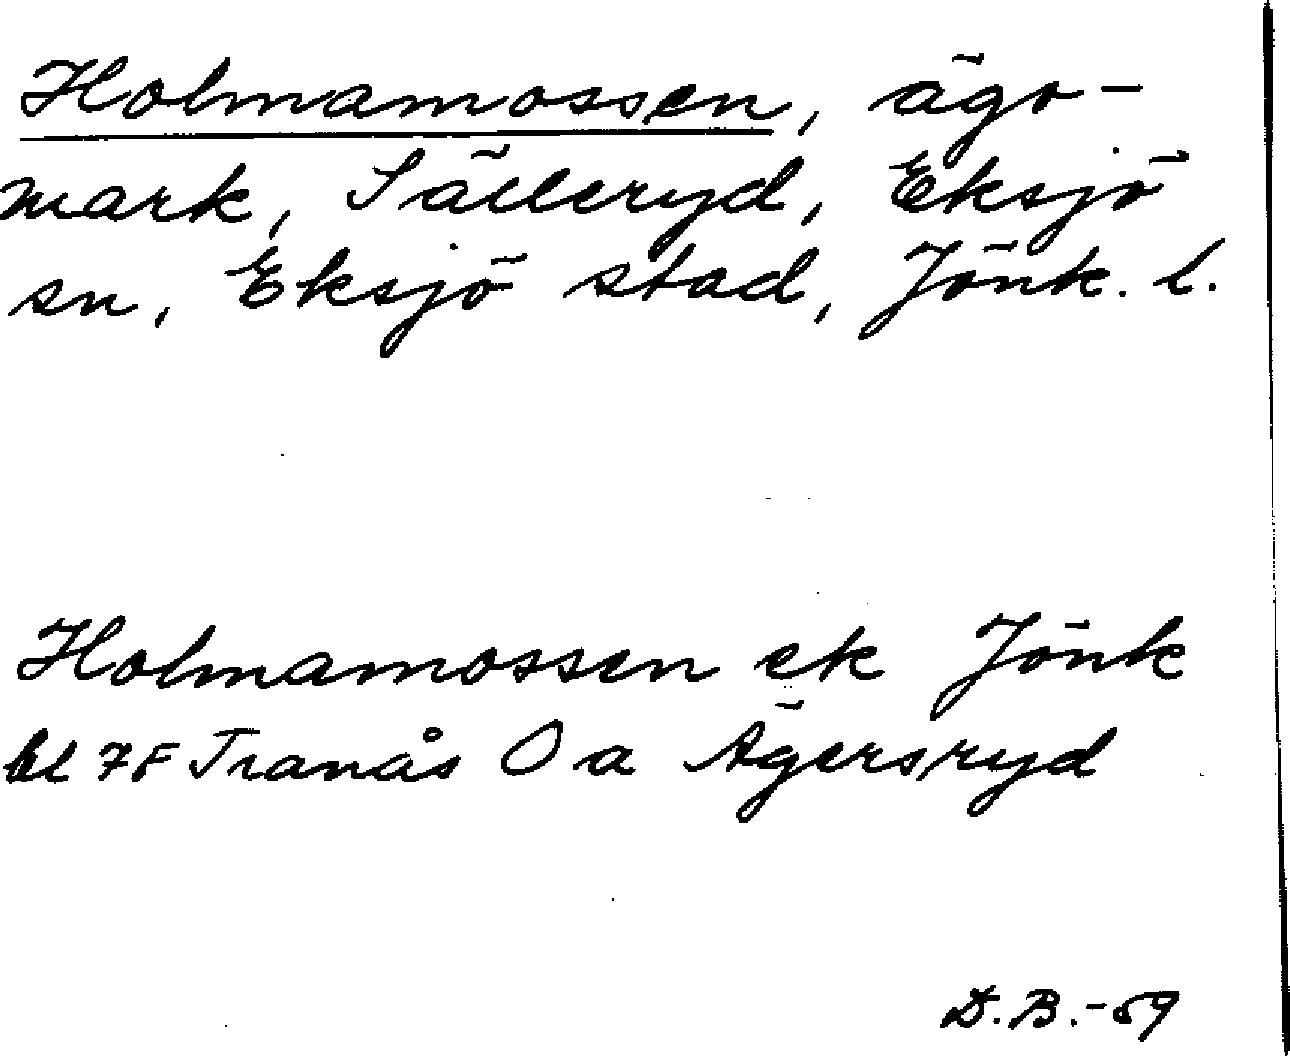 Holmamossen, ägo-
mark, Sälleryd, Eksjö
sn, Eksjö stad, Jönk. l.
Holmamossen ek Jönk
bl 7F Tranås O a Ägersryd
D.B.-59